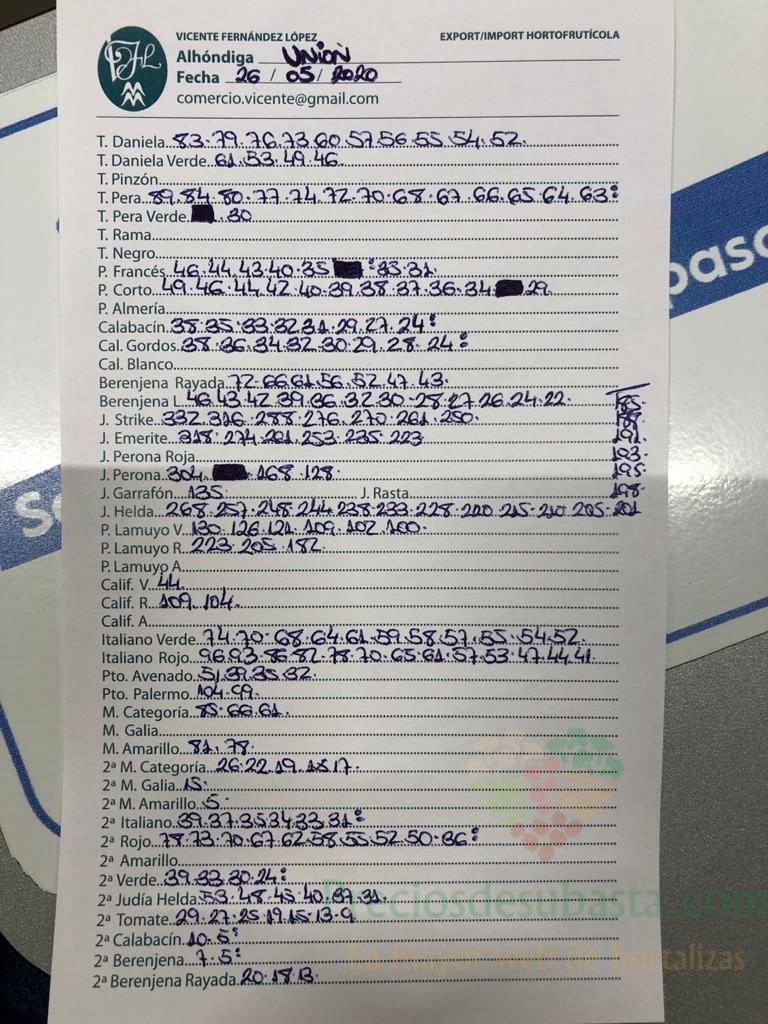 VICENTE FERNÁNDEZ LÓPEZ EXPORT/IMPORT HORTOFRUTÍCOLA
Alhóndiga UNION
Fecha 26 / 05 / 2020
comercio.vicente@gmail.com
T. Daniela 83.79.76.73.60.57.56.55.54.52.
T. Daniela Verde 61.53.49.46.
T. Pinzón
T. Pera 89.84.80.77.74.72.70.68.67.66.65.64.63:
T. Pera Verde .30
T. Rama
T. Negro
P. Francés 46.44.43.40.35 :33.31.
P. Corto 49.46.44.42.40.39.38.37.36.34 29.
P. Almería
Calabacín 38.35.33.32.31.29.27.24:
Cal. Gordos 38.36.34.32.30.29.28.24:
Cal. Blanco
Berenjena Rayada 72.66.61.56.52.47.43.
Berenjena L. 46.43.42.39.36.32.30.28.27.26.24.22. 185.
J. Strike 332.316.288.276.270.261.250.
J. Emerite 318.274.261.253.235.223 191.
J. Perona Roja 193.
J. Perona 304. .168.128. 195.
J. Garrafón 135. J. Rasta 198.
J. Helda 268.257.248.244.238.233.228.220.215.210.205.201
P. Lamuyo V. 130.126.121.109.102.100.
P. Lamuyo R. 223.205.182.
P. Lamuyo A.
Calif. V. 44.
Calif. R. 109.104.
Calif. A.
Italiano Verde 74.70.68.64.61.59.58.57.55.54.52.
Italiano Rojo 96.93.86.82.78.70.65.61.57.53.47.44.41.
Pto. Avenado 51.39.35.32.
Pto. Palermo 104.99.
M. Categoría 85.66.61.
M. Galia
M. Amarillo 81.78.
2ª M. Categoría 26.22.19.18.17.
2ª M. Galia 15.
2ª M. Amarillo 5.
2ª Italiano 39.37.35.34.33.31:
2ª Rojo 78.73.70.67.62.58.55.52.50.36:
2ª Amarillo
2ª Verde 39.33.30.24:
2ª Judía Helda 53.48.45.40.37.31.
2ª Tomate 29.27.25.19.15.13.9.
2ª Calabacín 10.5:
2ª Berenjena 7.5:
2ª Berenjena Rayada 20.18.13.
Preciosdesubasta.com
La mayor web de hortalizas